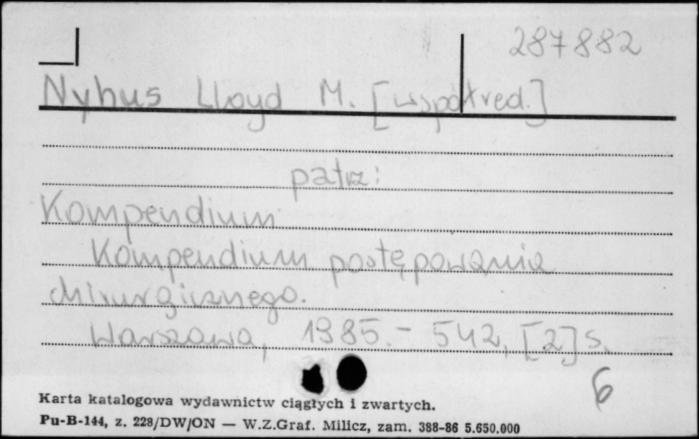 287882
Nyhus Lloyd M. [współred.]
patrz:
Kompendium
Kompendium postępowania
chirurgicznego.
Warszawa, 1985. - 542, [2] s.
6
Karta katalogowa wydawnictw ciągłych i zwartych.
Pu-B-144, z. 228/DW/ON — W.Z.Graf. Milicz, zam. 388-86 5.650.000